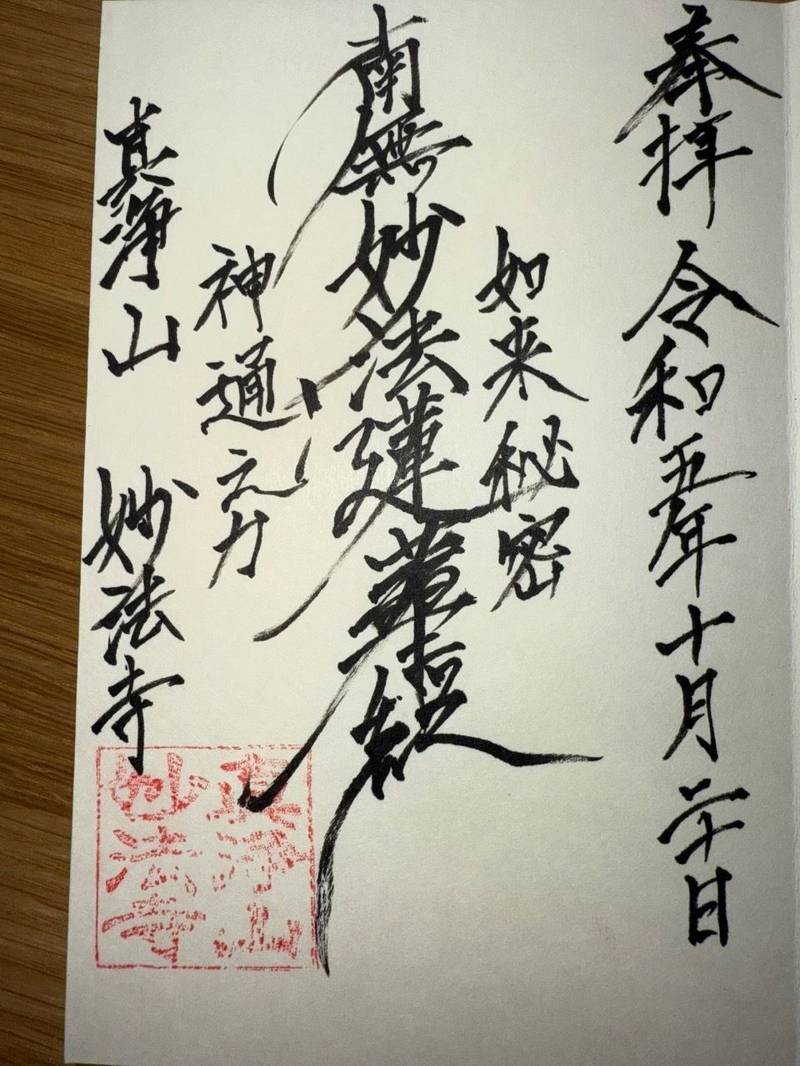 奉拝 令和五年十月二十日
如来秘密
南無妙法蓮華経
神通之力
真浄山 妙法寺
真浄山
妙法寺